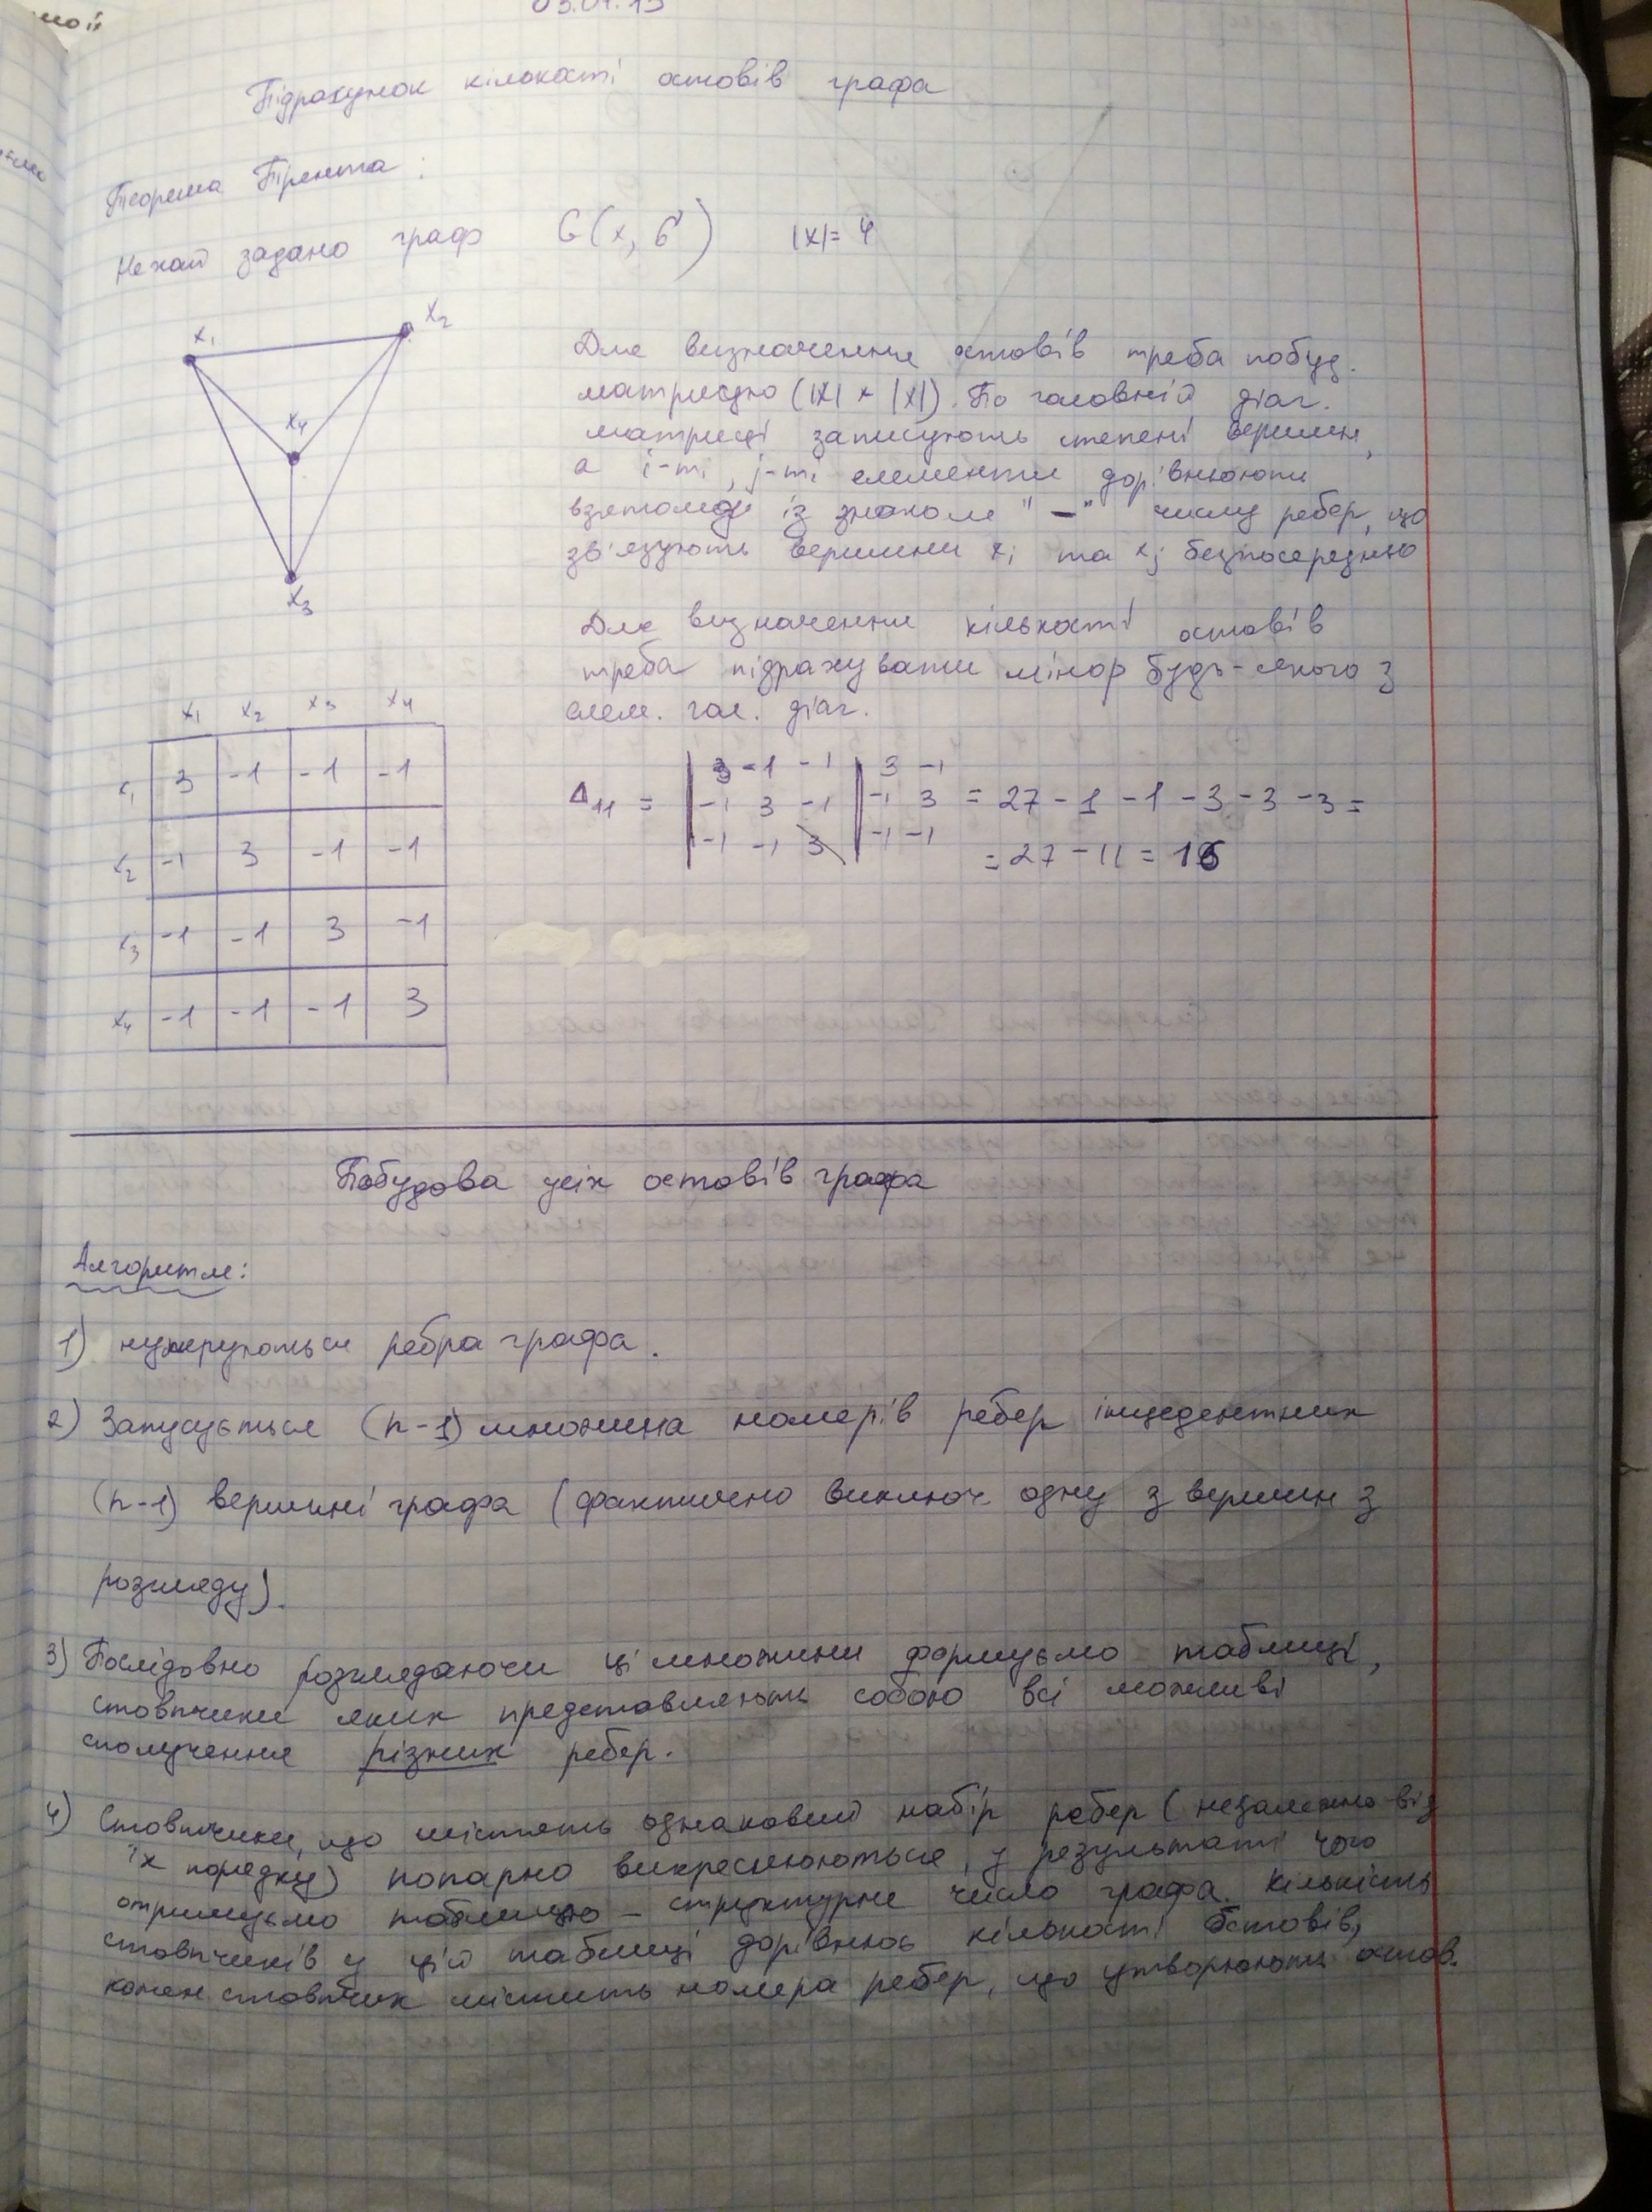 03.04.13
Підрахунок кількості остовів графа
Теорема Трента :
Нехай задано граф G(x, G) |X|= 4
x₁ x₂
x₄
x₃
Для визначення остовів треба побуд.
матрицю (|X| × |X|). По головній діаг.
матриці записують степені вершин,
а і-ті, j-ті елементи дорівнюють
взятому із знаком "-" числу ребер, що
зв'язують вершини xᵢ та xⱼ безпосередньо
Для визначення кількості остовів
треба підрахувати мінор будь-якого з
елем. гол. діаг.
x₁ x₂ x₃ x₄
x₁ 3 -1 -1 -1
x₂ -1 3 -1 -1
x₃ -1 -1 3 -1
x₄ -1 -1 -1 3
3 -1 -1 | 3 -1
Δ₁₁ = | -1 3 -1 | -1 3 = 27 - 1 - 1 - 3 - 3 - 3 =
-1 -1 3 | -1 -1
= 27 - 11 = 16
Побудова усіх остовів графа
Алгоритм:
1) нумеруються ребра графа.
2) Запусується (n-1) множина номерів ребер інцедентних
(n-1) вершині графа (фактично виключ. одну з вершин з
розгляду).
3) Послідовно розглядаючи ці множини формуємо таблиці,
стовпчики яких представляють собою всі можливі
сполучення різних ребер.
4) Стовпчики, що містять однаковий набір ребер (незалежно від
їх порядку) попарно викреслюються, у результаті чого
отримуємо таблицю - структурне число графа. Кількість
стовпчиків у цій таблиці дорівнює кількості остовів,
кожен стовпчик містить номера ребер, що утворюють остов.